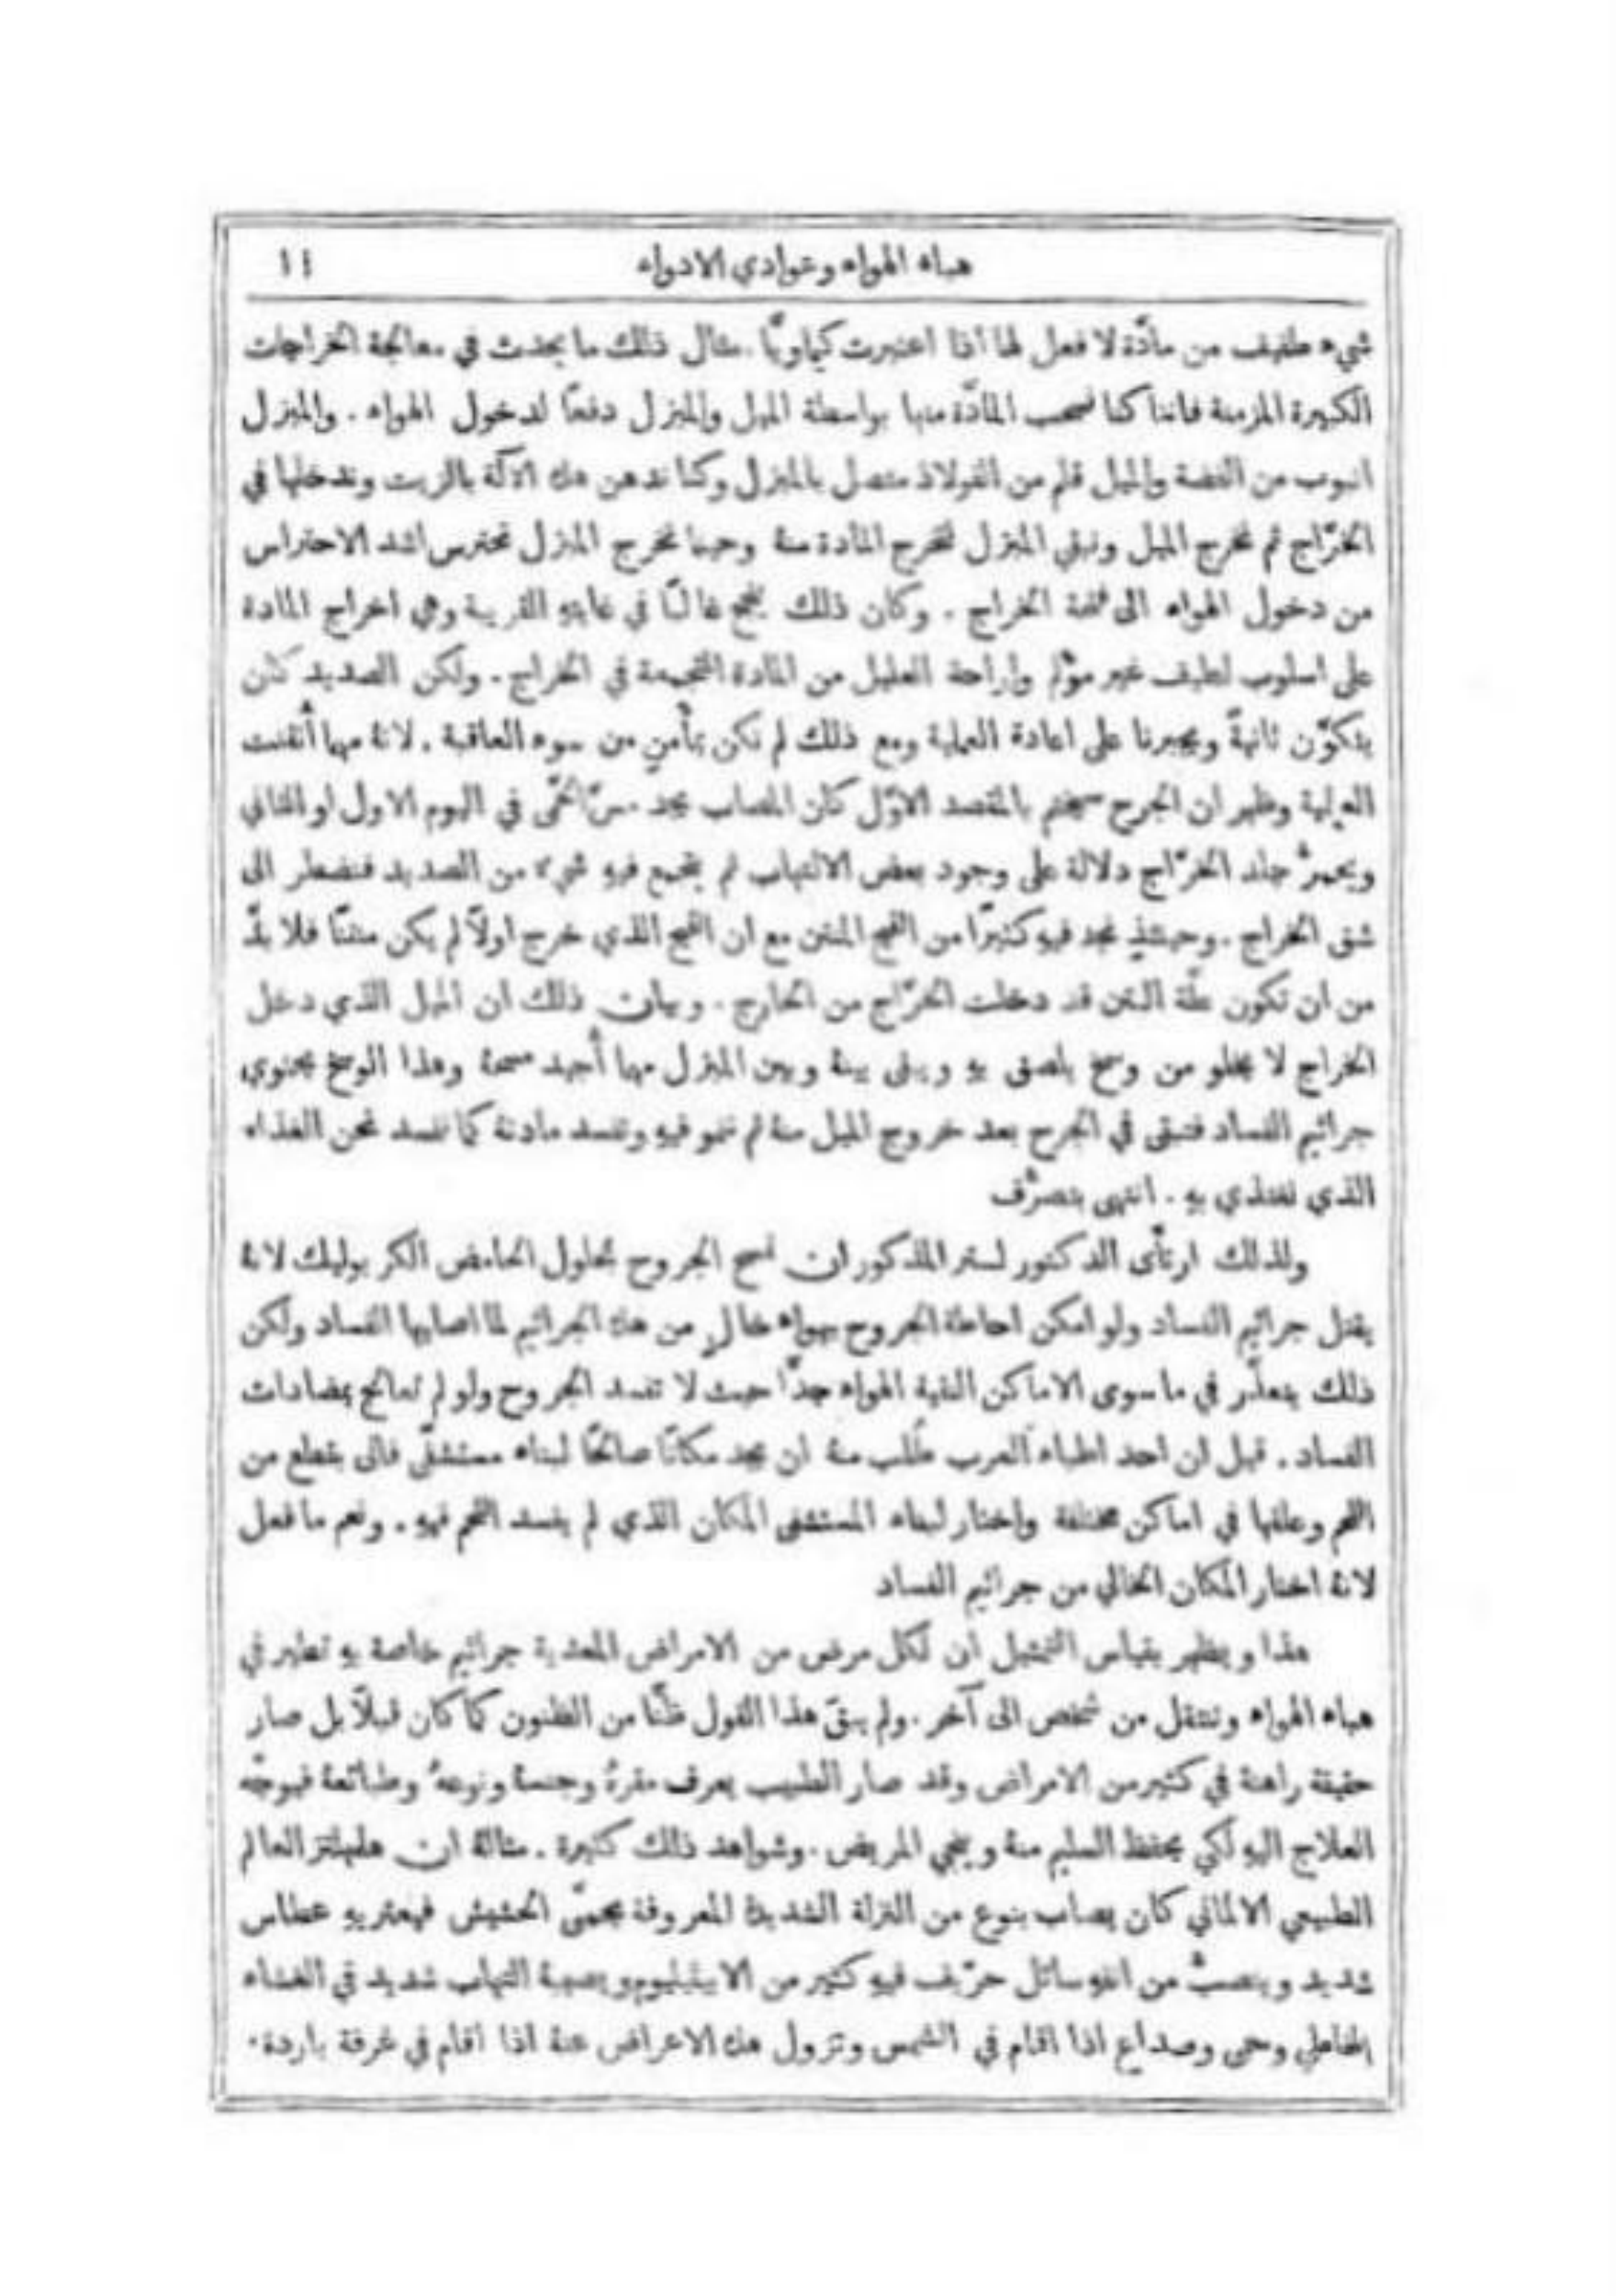 هباء الهواء وعوادي الادواء ١١
شيء طفيف من مادّة لا فعل لها اذا اعتبرت كيماويًّا. مثال ذلك ما يحدث في معالجة الخراجات
الكبيرة المزمنة فاننا كنا نسحب المادّة منها بواسطة الميل والمبزل دفعًا لدخول الهواء. والمبزل
انبوب من الفضة والميل قلم من الفولاذ متصل بالمبزل وكنا ندهن هذه الآلة بالزيت وندخلها في
الخرّاج ثم نخرج الميل ونبقي المبزل لتخرج المادة منهُ وحينما نخرج المبزل نحترس اشد الاحتراس
من دخول الهواء الى فتحة الخراج. وكان ذلك ينجح غالبًا في غايتهِ القريبة وهي اخراج المادة
على اسلوب لطيف غير مؤلم واراحة العليل من المادة المتجمعة في الخراج. ولكن الصديد كان
يتكوَّن ثانيةً ويجبرنا على اعادة العملية ومع ذلك لم نكن بمأمن من سوء العاقبة. لانهُ مهما أُتقنت
العملية وظهر ان الجرح سيختم بالمقصد الاوّل كان المصاب يجد مسّ الحمّى في اليوم الاول او الثاني
ويحمرُّ جلد الخرّاج دلالة على وجود بعض الالتهاب ثم يجتمع فيهِ شيء من الصديد فنضطر الى
شق الخراج. وحينئذٍ نجد فيهِ كثيرًا من القيح المنتن مع ان القيح الذي خرج اولًا لم يكن منتنًا فلا بدَّ
من ان تكون علّة النتن قد دخلت الخرّاج من الخارج. وبيان ذلك ان الميل الذي دخل
الخراج لا يخلو من وسخ يلصق بهِ ويبقى بينهُ وبين المبزل مهما أُجهد مسحهُ وهذا الوسخ يحتوي
جراثيم الفساد فتبقى في الجرح بعد خروج الميل منهُ ثم تنمو فيهِ وتفسد مادتهُ كما نفسد نحن الغذاء
الذي نغتذي بهِ. انتهى بتصرُّف
ولذلك ارتأى الدكتور لستر المذكور ان تمسح الجروح بمحلول الحامض الكربوليك لانهُ
يقتل جراثيم الفساد ولو امكن احاطة الجروح بهواء خالٍ من هذه الجراثيم لما اصابها الفساد ولكن
ذلك يتعذّر في ما سوى الاماكن النقية الهواء جدًّا حيث لا تفسد الجروح ولو لم تعالج بمضادات
الفساد. قيل ان احد اطباء العرب طُلب منهُ ان يجد مكانًا صالحًا لبناء مستشفًى فاتى بقطع من
اللحم وعلقها في اماكن مختلفة واختار لبناء المستشفى المكان الذي لم يفسد اللحم فيهِ. ونعم ما فعل
لانهُ اختار المكان الخالي من جراثيم الفساد
هذا ويظهر بقياس التمثيل ان لكل مرض من الامراض المعدية جراثيم خاصة بهِ تطير في
هباء الهواء وتنتقل من شخص الى آخر. ولم يبقَ هذا القول ظنًّا من الظنون كما كان قبلًا بل صار
حقيقة راهنة في كثير من الامراض وقد صار الطبيب يعرف مقرهُ وجنسهُ ونوعهُ وطبائعهُ فيوجّه
العلاج اليهِ لكي يحفظ السليم منهُ وينجي المريض. وشواهد ذلك كثيرة. مثالهُ ان هلمهلتز العالم
الطبيعي الالماني كان يصاب بنوع من النزلة الشديدة المعروفة بحمّى الحشيش فيعتريهِ عطاس
شديد وينصبُّ من انفهِ سائل حرّيف فيهِ كثير من الايثيليوم ويصيبهُ التهاب شديد في الغشاء
المخاطي وحمى وصداع اذا اقام في الشمس وتزول هذه الاعراض عنهُ اذا اقام في غرفة باردة.